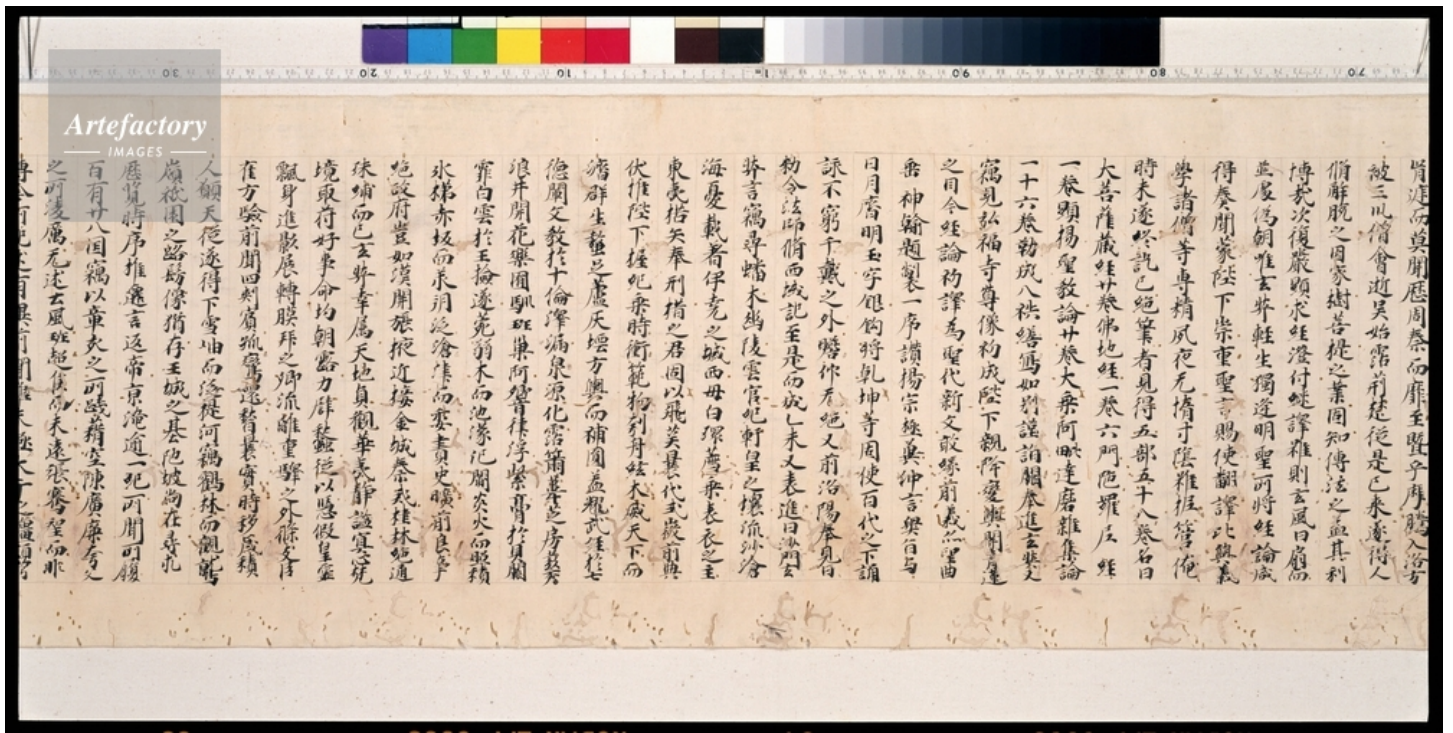 腎遊而莫聞歷周秦而靡至暨乎摩騰入洛方
被三川僧會逝吳始霑荊楚從是已來遂得人
脩解脫之因家樹菩提之業固知傳法之益其利
博哉次復嚴顯求經澄什継譯雖則玄風日扇而
並處偽朝唯玄奘輕生獨逢明聖所將經論咸
得奏聞蒙陛下崇重聖言賜使翻譯比與義
學諸僧等專精夙夜无惰寸陰雖握管淹
時未遂終訖已絕筆者見得五部五十八卷名曰
大菩薩藏經廿卷佛地經一卷六門陁羅尼經
一卷顯揚聖教論廿卷大乘阿毗達磨雜集論
一十六卷勒成八袟繕寫如別謹詣闕奉進玄奘又
竊見弘福寺尊像初成陛下親降鑾輿開青蓮
之目今經論初譯為聖代新文敢緣前義亦望曲
垂神翰題製一序讚揚宗極冀沖言奧旨与
日月齊明玉字銀鈎將乾坤等固使百代之下誦
詠不窮千載之外瞻仰无絕又前洛陽奉見日
勅令法師脩西域記至是而成乙未又表進曰沙門玄
奘言竊尋蟠木幽陵雲官紀軒皇之壤流沙滄
海夏載著伊堯之域西母白環薦垂衣之主
東夷楛矢奉刑措之君固以飛英曩代式徽前典
伏惟陛下握紀乘時衡範物刳舟弦木威天下而
濟群生鼇足蘆灰堙方輿而補圓蓋耀武經於七
德闡文教於十倫澤漏泉源化霑蕭葦芝房發秀
浪井開花樂囿馴班巢阿響律浮紫膏於貝闕
霏白雲於玉檢遂苑弱木而池濛汜圃炎火而照積
氷梯赤坂而承朔泛滄津而委賮史曠前良事
絕故府豈如漢開張掖近接金城秦戍桂林纔通
珠浦而已玄奘幸屬天地貞觀華夷靜謐冥心梵
境敢符好事命均朝露力譬秋螽徒以憑假皇靈
飄身進影展轉膜拜之鄉流離重驛之外條支巨
雀方驗前聞罽賓孤鸞還稽曩實時移歲積
人願天從遂得下雪岫而泛提河窺鶴林而觀鷲
嶺祇園之路髣髴猶存王城之基陁坡尚在尋孔
歷覽時序推遷言返帝京淹逾一紀所聞所履
百有廿八国竊以章亥之所踐藉空陳廣袤夸父
之所凌厲无述土風班超侯而未遠張騫望而非
博今所記述有異前聞雖未極大千之疆頗窮
Artefactory
IMAGES